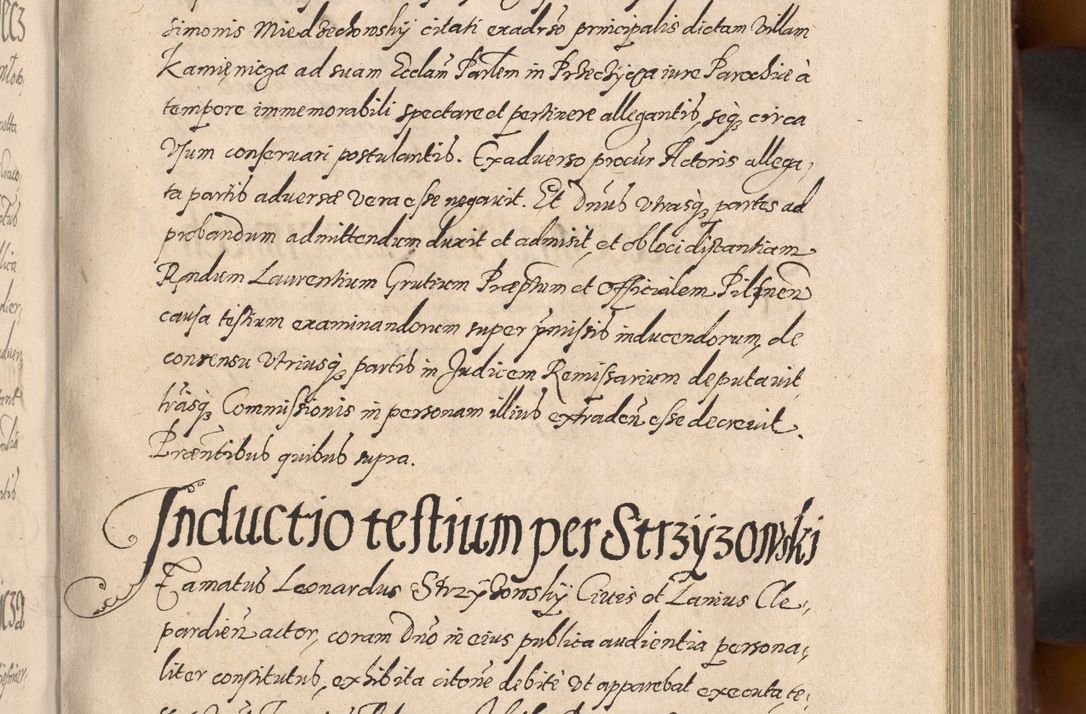 Simonis Miedzechowskÿ citati exadrso principalis dictam Villam
Kamięnicza ad suam Ecclam Partem in Przeczÿcza iure Parochiæ à
tempore immemorabili spectare et pertinere allegantis, seq; circa
Vsum conseruari postulantis. Exaduerso procur Actoris allega,
ta partis aduersæ vera esse negauit. Et Dnus vtrasq; partes ad
probandum admittendum duxit et admisit, et ob loci distantiam
Rendum Laurentium Grutium Præptum et officialem Pilsnen
causa testium examinandorum super pmissis inducendorum, de
consensu vtriusq; partis in Judicem Remissarium deputauit
lrasq; Commissionis in personam illius extraden esse decreuit.
Præntibus quibus supra.
Inductio testium per Strzÿzowski
Famatus Leonardus Strzÿzowskÿ Ciuis et Lanius Cle,
pardien actor, coram Dno in eius publica audientia persona,
liter constitutus, exhibita citone debitè vt apparebat executa te,